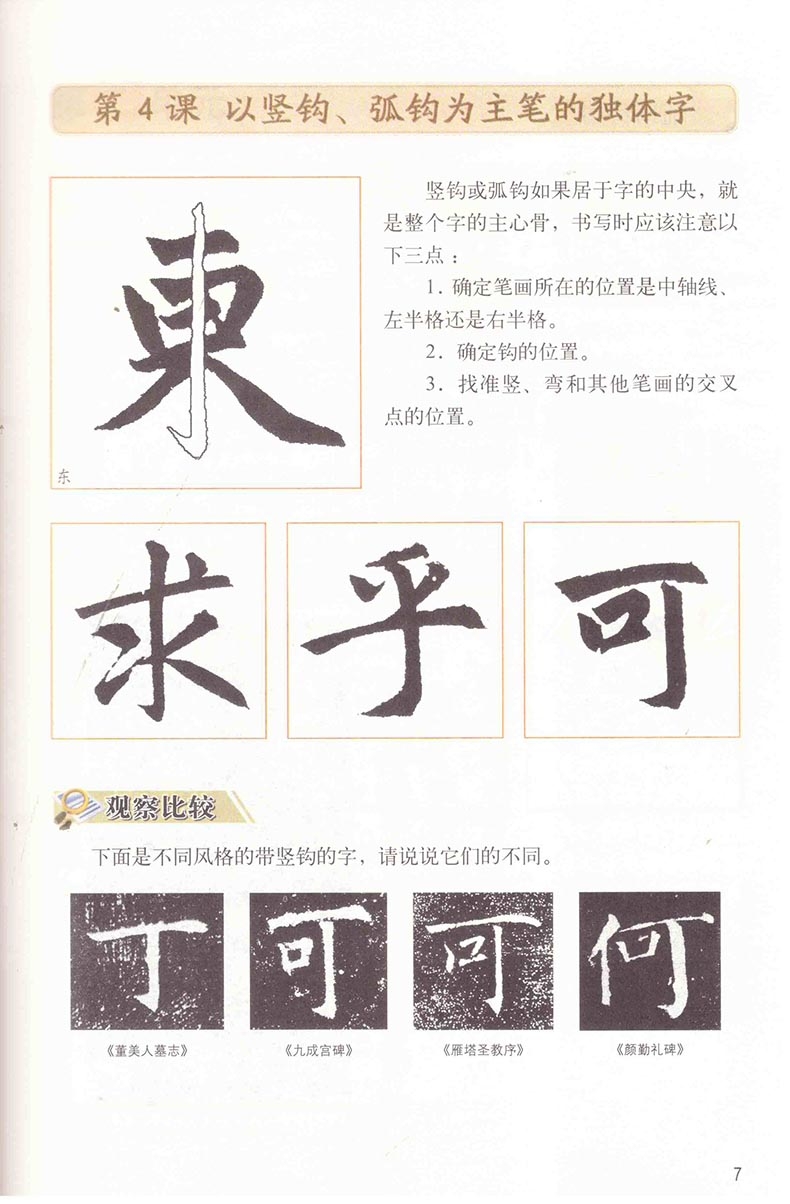 第4课 以竖钩、弧钩为主笔的独体字
東
东
竖钩或弧钩如果居于字的中央，就
是整个字的主心骨，书写时应该注意以
下三点：
1．确定笔画所在的位置是中轴线、
左半格还是右半格。
2．确定钩的位置。
3．找准竖、弯和其他笔画的交叉
点的位置。
求
乎
可
观察比较
下面是不同风格的带竖钩的字，请说说它们的不同。
丁
可
可
何
《董美人墓志》
《九成宫碑》
《雁塔圣教序》
《颜勤礼碑》
7